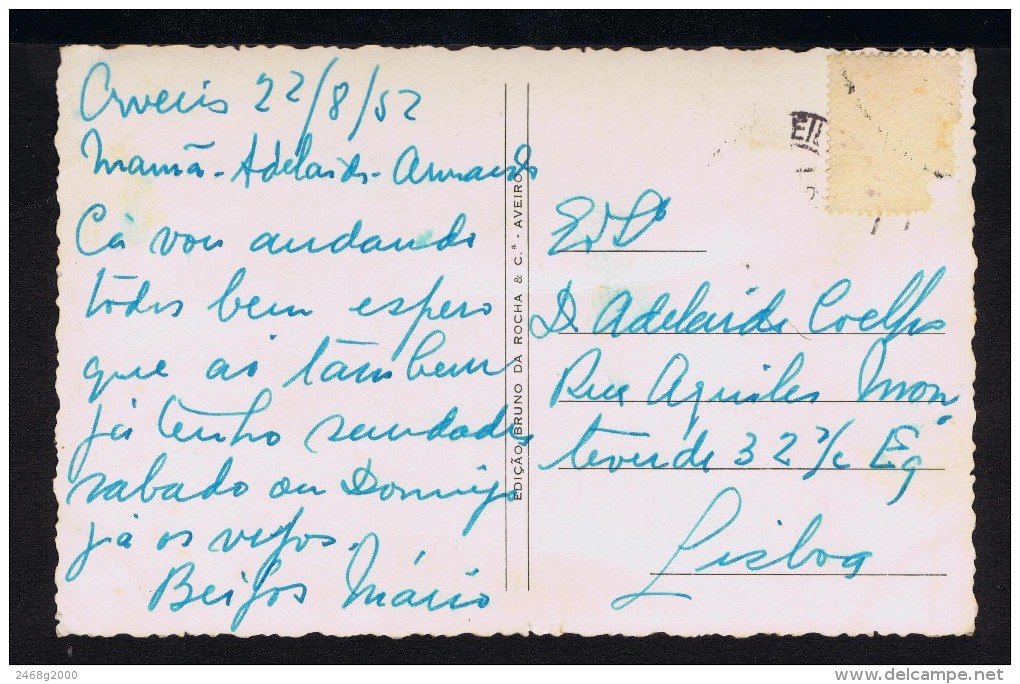 22/8/52
Mamã - Adelaide - Armando
Cá vou andando
todos bem espero
que aí também
já tenho saudades
sabado ou Domingo
já os vejos.
Beijos Mário
EDIÇÃO BRUNO DA ROCHA & C.ª - AVEIRO
D. Adelaide Coelho
Rua Aquiles Mon
teverde 32 r/c Eq
Lisboa
2468g2000
delcampe.net